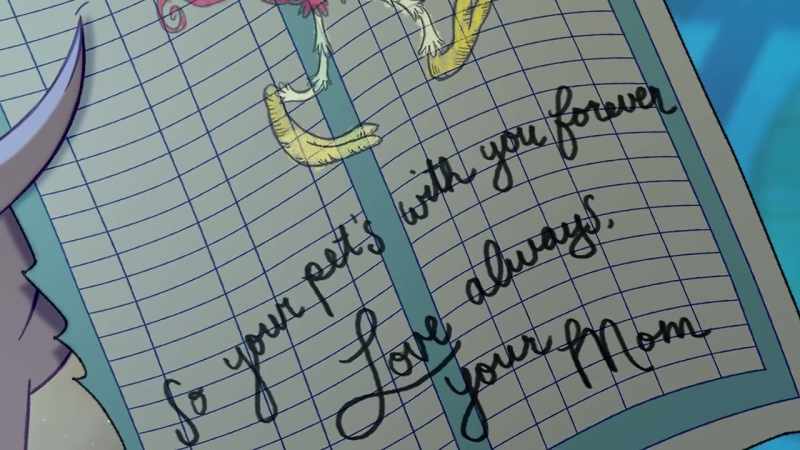 So your pet's with you forever
Love always,
your Mom